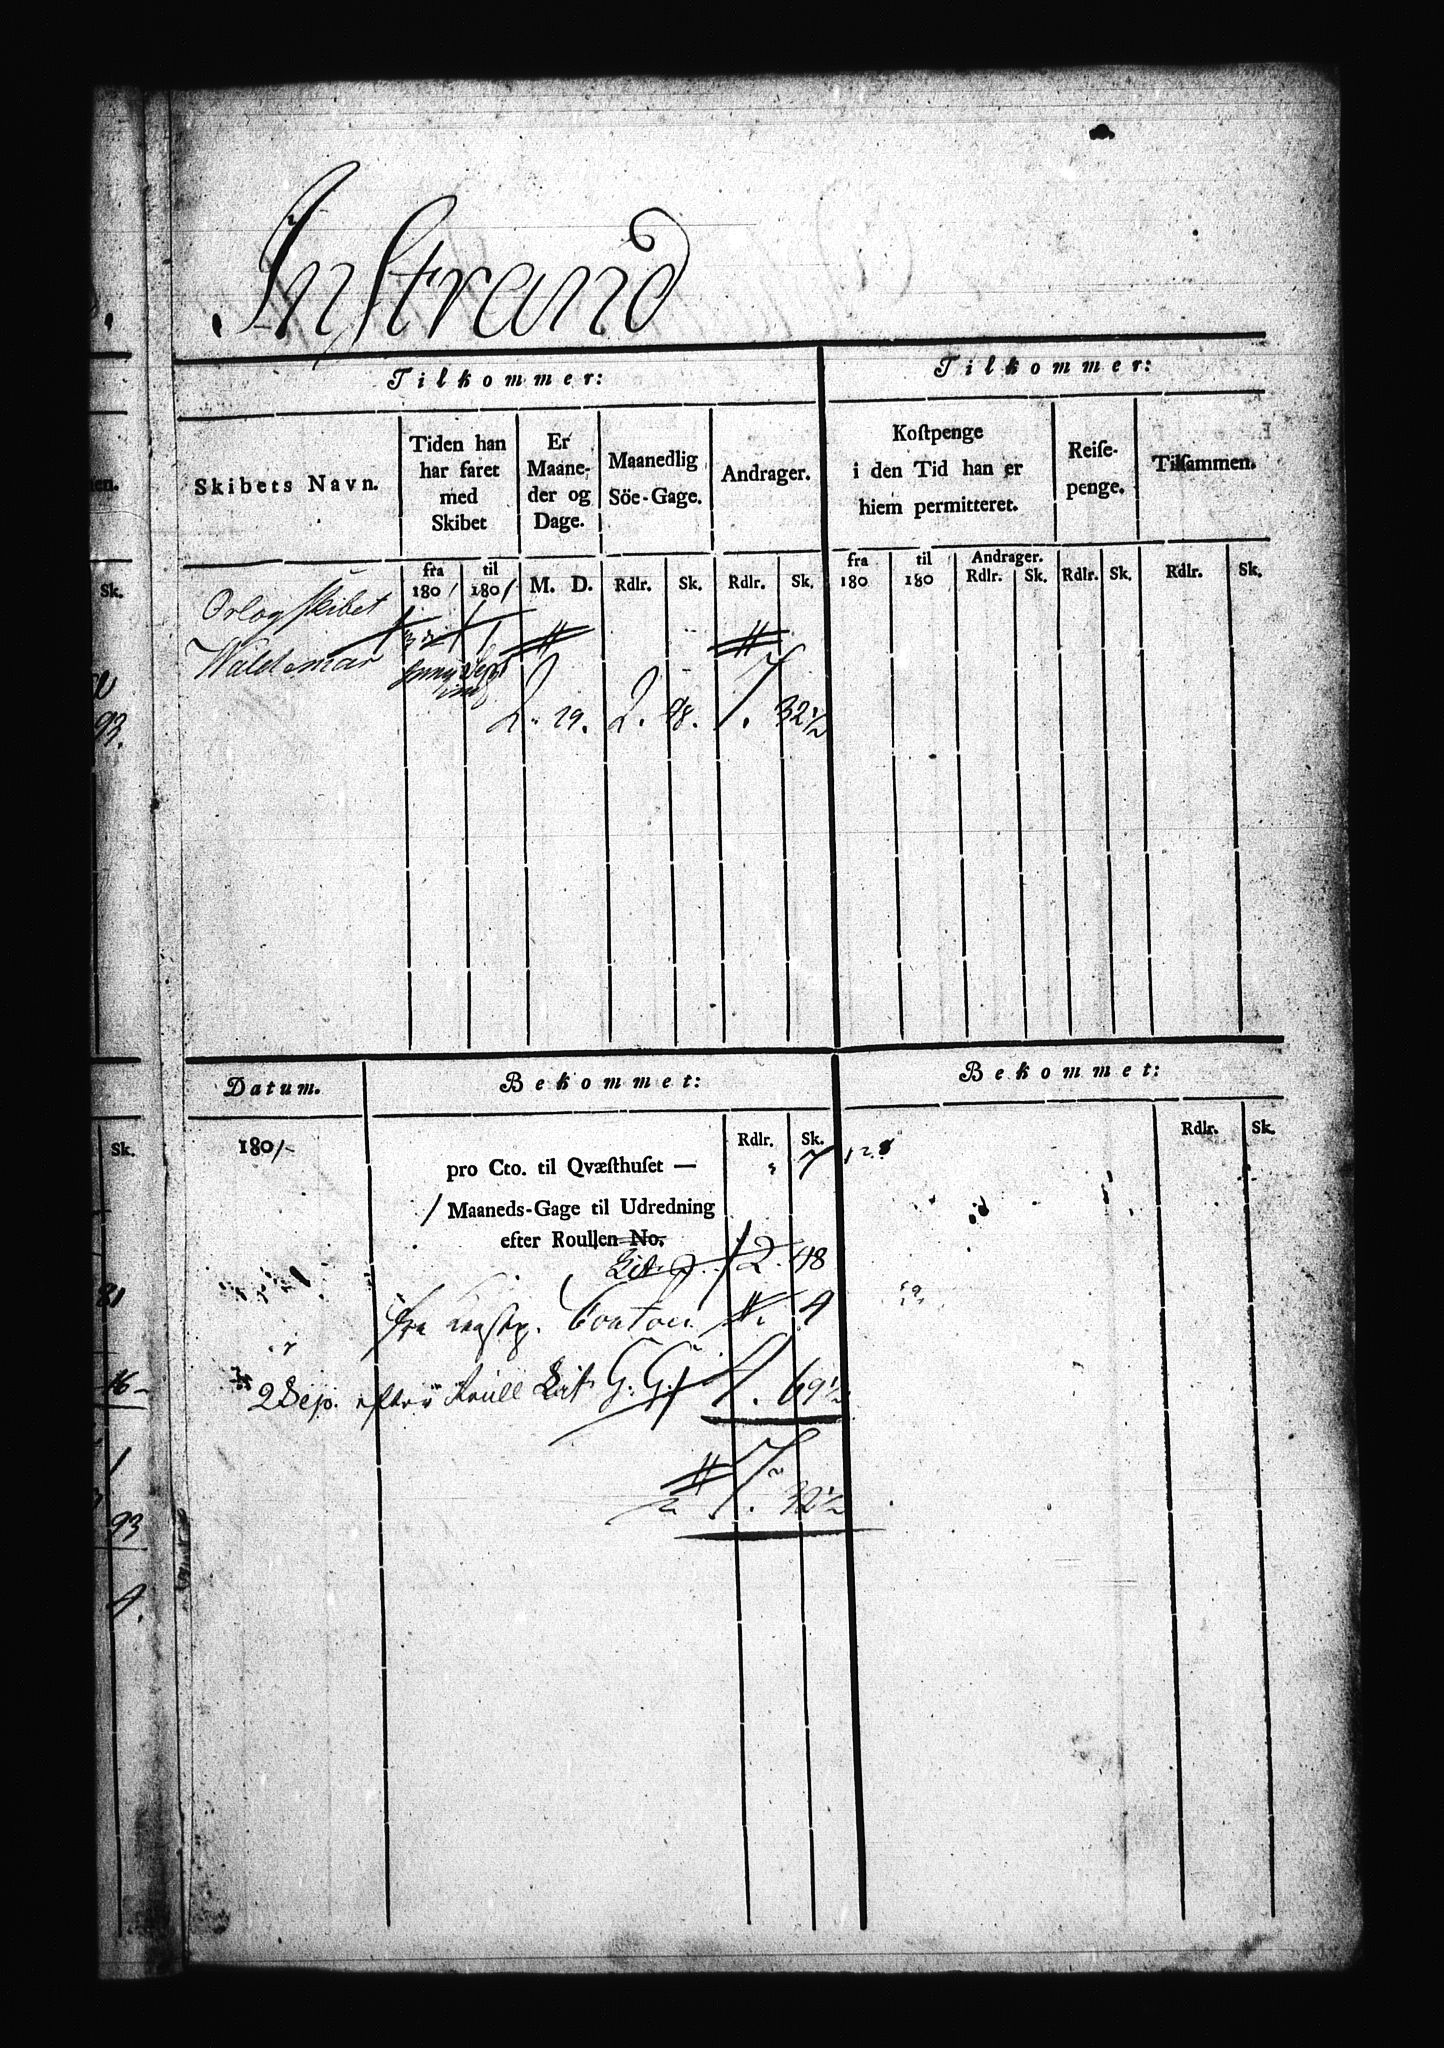 Instrand
Tilkommer:
Tilkommer:
Skibets Navn.
Tiden han
har faret
med
Skibet
Er
Maane-
der og
Dage.
Maanedlig
Söe-Gage.
Andrager.
Kostpenge
i den Tid han er
hiem permitteret.
Reise-
penge.
Tilsammen.
fra
180/
til
180/
M. D.
Rdlr. Sk.
Rdlr. Sk.
fra
180
til
180
Andrager.
Rdlr. Sk.
Rdlr. Sk.
Rdlr. Sk.
Orlogskibet
Waldemar
2. 29. 2. 48. 7. 32½
Datum.
Bekommet:
Bekommet:
180/-
Rdlr. Sk.
Rdlr. Sk.
pro Cto. til Qvæsthuset — " 7
/ Maaneds-Gage til Udredning
efter Roullen No.
Lit. 2. 48
fra Contoir
2 Sep. efter Roull Lit G:G: 69½
7. 32½
Sk.
93.
Sk.
81
16-
1
93